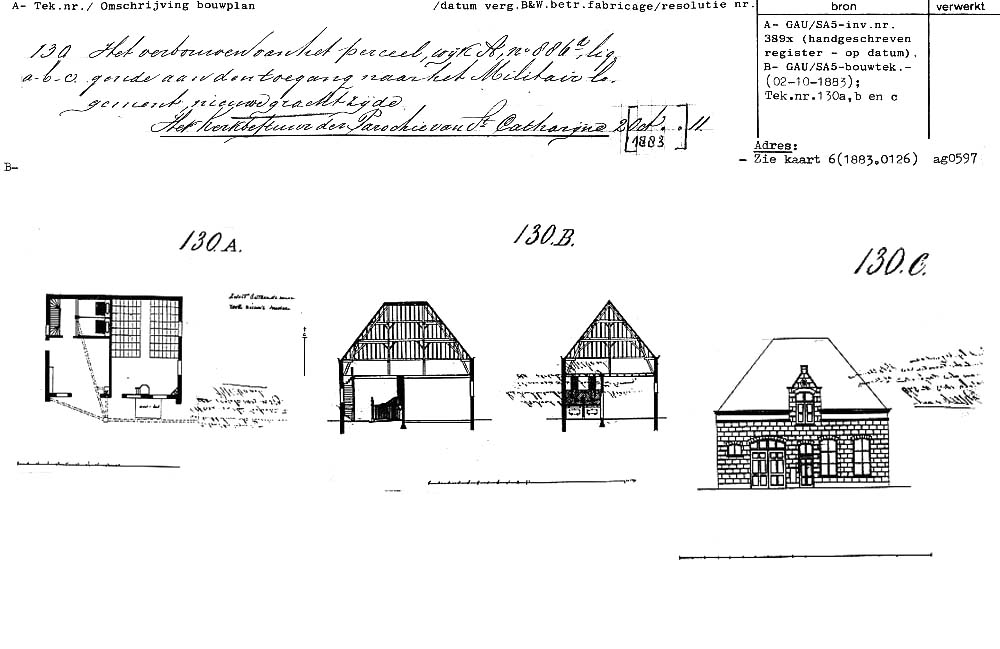 A- Tek.nr./ Omschrijving bouwplan /datum verg.B&W.betr.fabricage/resolutie nr.
bron
verwerkt
130 Het verbouwen van het perceel, wijk A, no 886a, lig-
a-b-c. gende aan den toegang naar het Militair lo-
gement, nieuwegracht zijde
Het kerkbestuur der Parochie van St Catharijne 2 Oct. . 11.
1883
A- GAU/SA5-inv.nr.
389x (handgeschreven
register - op datum).
B- GAU/SA5-bouwtek.-
(02-10-1883);
Tek.nr.130a,b en c
Adres:
- Zie kaart 6(1883.0126) ag0597
B-
130.A.
130.B.
130.C.